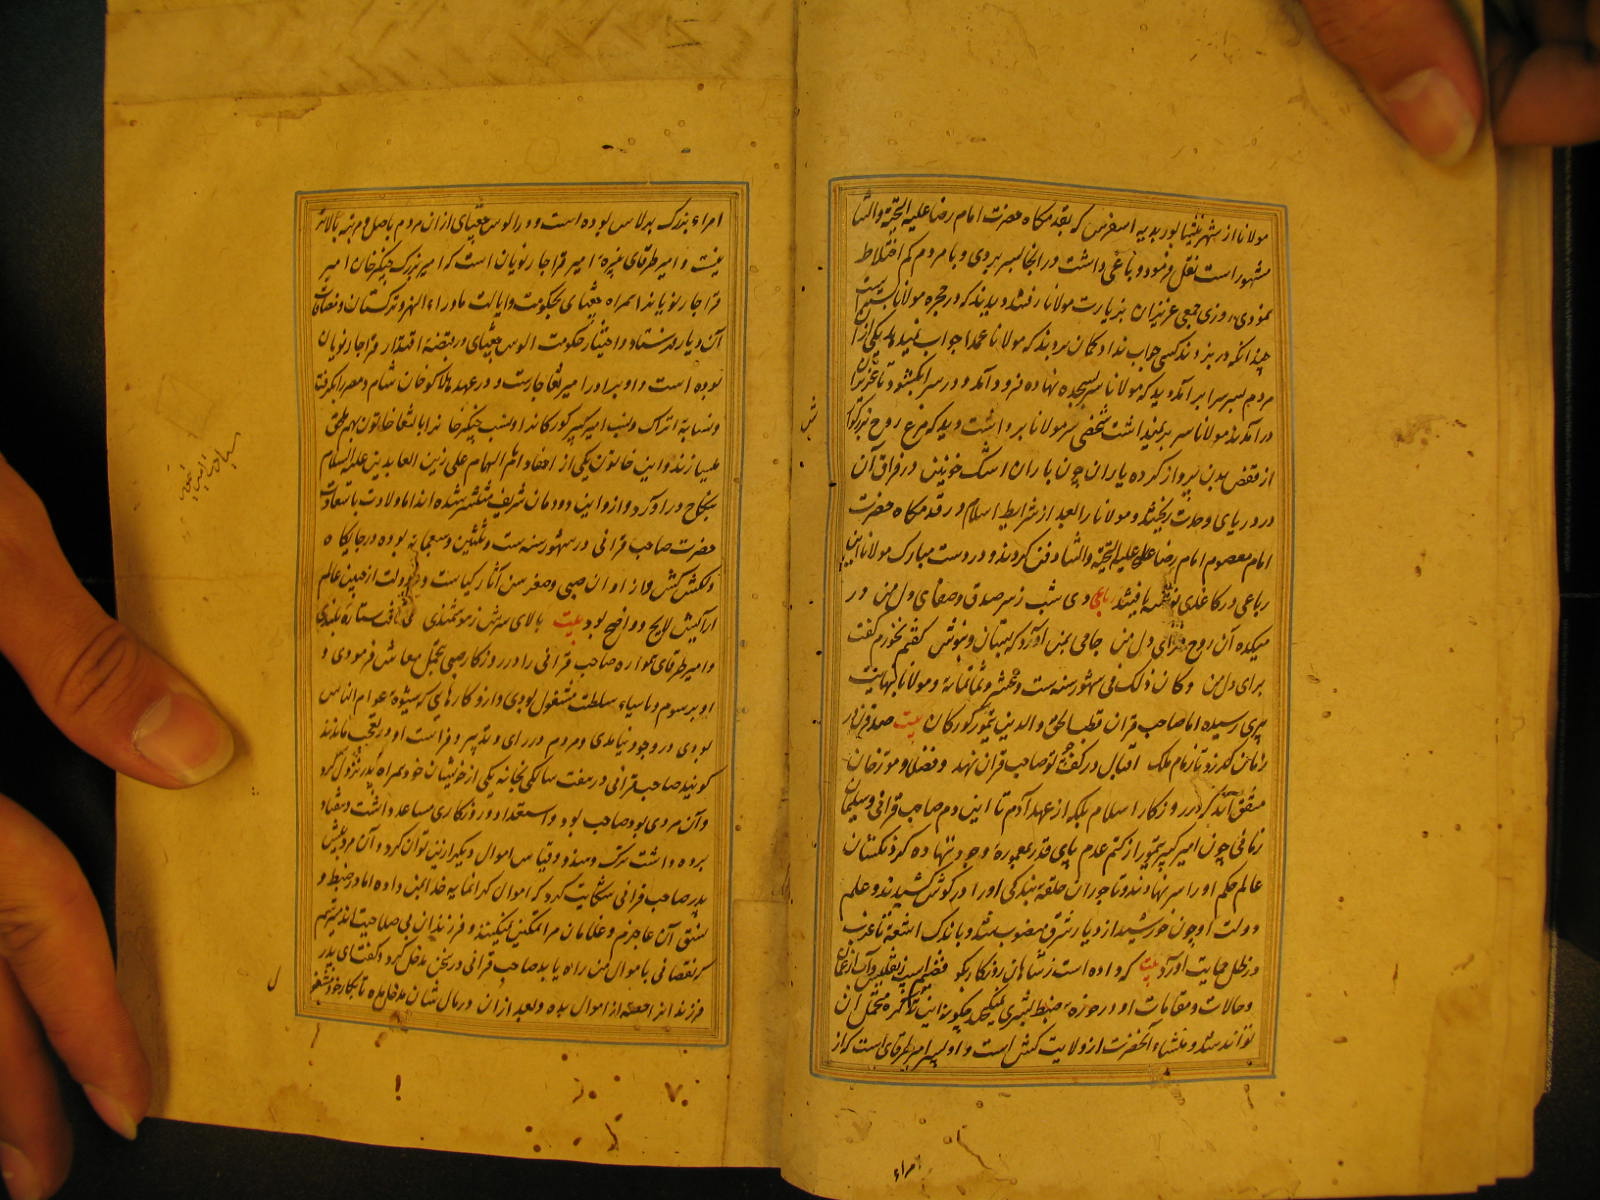 مولانا از شهر نیشابور بدیه اسفرس که بقدمکاه حضرت امام رضا علیه التحیة والثنا
مشهور است نقل فرمود و باغی داشت در انجا بسر بردی و با مردم کم اختلاط
نمودی روزی جمعی عزیزان بزیارت مولانا رفتند دیدند که در حجره مولانا بسته است
چندانکه در بزدند کسی جواب نداد کمان بردند که مولانا عمدا جواب نمیدهد یکی از ان
مردم بسر سرا برآمد دید که مولانا سر بسجده نهاده فرود آمد و در سرا بکشود تا عزیزان
در آمدند مولانا سر بر نمیداشت شخصی سر مولانا برداشت دید که مرغ روح بزرکوار
از قفص بدن پرواز کرده یاران چون باران اشک خونین در فراق آن
در دریای وحدت ریختند و مولانا را بعد از شرایط اسلام در قدمکاه حضرت
امام معصوم امام رضا علی علیه التحیة والثنا دفن کردند و در دست مبارک مولانا این
رباعی در کاغذی نوشته یافتند رباعی دی شب ز سر صدق و صفای دل من در
میکده آن روح فزای دل من جامی بمن آورد که بستان و بنوش کفتم نخورم کفت
برای دل من و کان ذلک فی شهور سنه ست و خمسه و ثمانمائة و مولانا بنهایت
پیری رسیده اما صاحب قران قطب الحق والدین تیمور کورکان بیت صد قرن بر
زمانش کذرد تا زمام ملک اقبال در کف چو تو صاحب قران نهد و فضلا و مورخان
متفق اند که در روزکار اسلام بلکه از عهد آدم تا این دم صاحب قرانی و سلیمان
زمانی چون امیر کبیر تیمور از کتم عدم پای قدر بمعموره وجود ننهاده کردنکشان
عالم حکم او را سر نهادند و تاجوران حلقه بندکی او را در کوش کشیدند و علم
دولت او چون خورشید از دیار شرق منصوب شد و باندک اشعة تا غرب
در ظل حمایت آورد بیت که داده است ز شاهان روزکار بکو
و حالات و مقامات او در حوزه ضبط بشری نمیکنجد چکونه این تذکره محتمل آن
تواند شد و منشاء آنحضرت از ولایت کش است و او پسر امیر طرقای است که از
امراء
امراء بزرک برلاس بوده است و در الوس جغتای از ان مردم باصل و مرتبه بالاتر
نیست و امیر طرقای نبیره امیر قراجار نویان است که امیر بزرک چنکیز خان امیر
قراجار نویان را همراه جغتای بحکومت و ایالت ماوراء النهر و ترکستان و مضافات
آن دیار فرستاد و اختیار حکومت الوس جغتای در قبضه اقتدار قراجار نویان
بوده است و او برادر امیر لغاجارست و در عهد هلاکو خان شام و مصر را بکرفت
و نسابه اتراک و نسب امیر کبیر کورکان را و نسب چنکیز خان را بالنقوا خاتون بهم ملحق
میسازند و این خاتون یکی از احفاد امام الهمام علی زین العابدین علیه السلام
بنکاح در آورد و ازو این دودمان شریف منشر شده اند اما ولادت با سعادت
حضرت صاحب قرانی در شهور سنه ست و ثلثین و سبعمائه بوده در جایکاه
دلکش کش و از اوان صبی و صغر سن آثار کیاست و دولت از جبین عالم
آرایش لایح و واضح بود بیت بالای سرش ز هوشمندی می تافت ستاره بلندی
و امیر طرقای همواره صاحب قرانی را در روزکار صبی تحمل معاش فرمودی و
او برسوم و اسباب سلطنت مشغول بودی و از و کارهای که شیوه عوام الناس
بودی در وجود نیامدی و مردم در رای و تدبیر و فراست او در تعجب ماندند
کویند صاحب قرانی در هفت سالکی بخانه یکی از خویشان خود همراه پدر نزول کرد
و آن مردی بود صاحب بود و استعداد و روزکاری مساعد داشت و هفتاد
برده داشت ترک و هند و وقتی اس اموال دیکر ازین توان کرد و آن مرد پیش
پدر صاحب قرانی شکایت کرد که اموال کرانمایه خدا بمن داده اما در ضبط و
نسق آن عاجزم و غلامان مرا تمکین نمیکنند و فرزندان بی صلاحیت اند میترسم
که نقصانی باموال من راه یابد صاحب قرانی در سخن مدخل کرد و کفت ای پدر
فرزندانرا حصه از اموال بده و بعد از ان در مال شان مدخل مده تا بکار خود مشغول